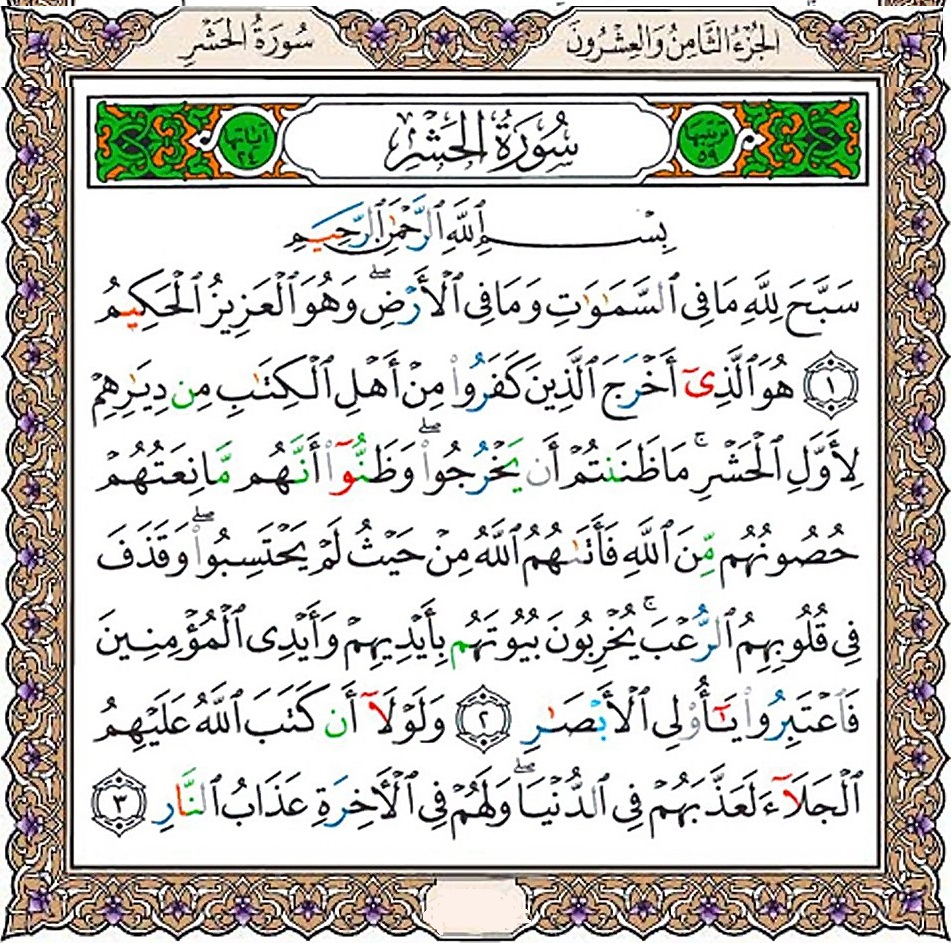 الجُزْءُ الثَّامِنُ وَالعِشْرُونَ
سُورَةُ الحَشْرِ
ترتيبها ٥٩
سُورَةُ الحَشْرِ
آياتها ٢٤
بِسْمِ ٱللَّهِ ٱلرَّحْمَٰنِ ٱلرَّحِيمِ
سَبَّحَ لِلَّهِ مَا فِى ٱلسَّمَٰوَٰتِ وَمَا فِى ٱلْأَرْضِ ۖ وَهُوَ ٱلْعَزِيزُ ٱلْحَكِيمُ
١ هُوَ ٱلَّذِىٓ أَخْرَجَ ٱلَّذِينَ كَفَرُوا۟ مِنْ أَهْلِ ٱلْكِتَٰبِ مِن دِيَٰرِهِمْ
لِأَوَّلِ ٱلْحَشْرِ ۚ مَا ظَنَنتُمْ أَن يَخْرُجُوا۟ ۖ وَظَنُّوٓا۟ أَنَّهُم مَّانِعَتُهُمْ
حُصُونُهُم مِّنَ ٱللَّهِ فَأَتَىٰهُمُ ٱللَّهُ مِنْ حَيْثُ لَمْ يَحْتَسِبُوا۟ ۖ وَقَذَفَ
فِى قُلُوبِهِمُ ٱلرُّعْبَ ۚ يُخْرِبُونَ بُيُوتَهُم بِأَيْدِيهِمْ وَأَيْدِى ٱلْمُؤْمِنِينَ
فَٱعْتَبِرُوا۟ يَٰٓأُو۟لِى ٱلْأَبْصَٰرِ ٢ وَلَوْلَآ أَن كَتَبَ ٱللَّهُ عَلَيْهِمُ
ٱلْجَلَآءَ لَعَذَّبَهُمْ فِى ٱلدُّنْيَا ۖ وَلَهُمْ فِى ٱلْءَاخِرَةِ عَذَابُ ٱلنَّارِ ٣